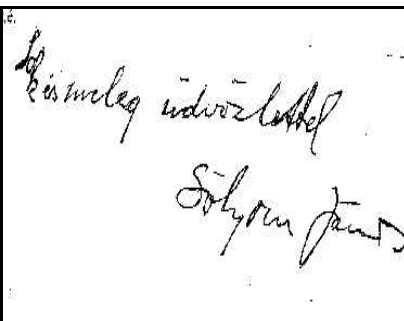 meleg üdvözlettel
Sólyom János